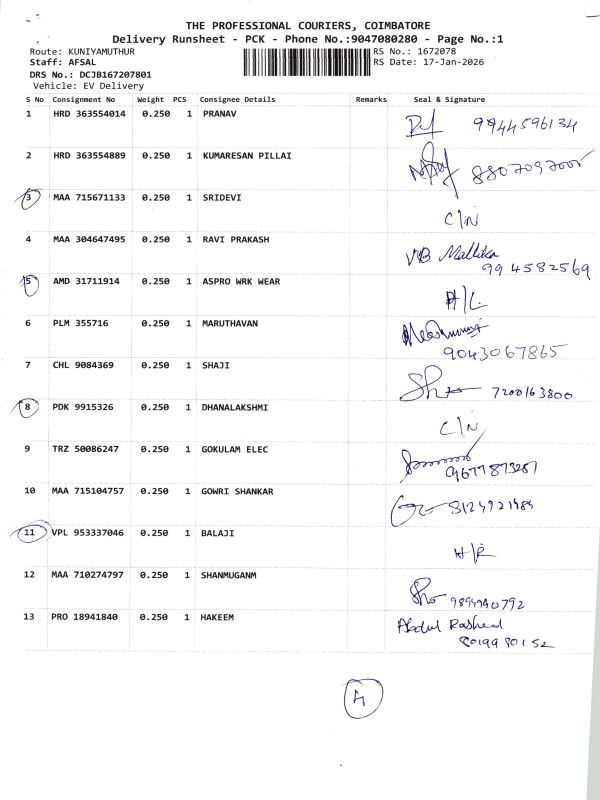 THE PROFESSIONAL COURIERS, COIMBATORE
Delivery Runsheet - PCK - Phone No.:9047080280 - Page No.:1
Route: KUNIYAMUTHUR RS No.: 1672078
Staff: AFSAL RS Date: 17-Jan-2026
DRS No.: DCJB167207801
Vehicle: EV Delivery
S No Consignment No Weight PCS Consignee Details Remarks Seal & Signature
1 HRD 363554014 0.250 1 PRANAV 9944596134
2 HRD 363554889 0.250 1 KUMARESAN PILLAI
3 MAA 715671133 0.250 1 SRIDEVI C/N
4 MAA 304647495 0.250 1 RAVI PRAKASH VB Mallika
994582569
5 AMD 31711914 0.250 1 ASPRO WRK WEAR H/L
6 PLM 355716 0.250 1 MARUTHAVAN
9043067865
7 CHL 9084369 0.250 1 SHAJI 7200163800
8 PDK 9915326 0.250 1 DHANALAKSHMI C/N
9 TRZ 50086247 0.250 1 GOKULAM ELEC
10 MAA 715104757 0.250 1 GOWRI SHANKAR
11 VPL 953337046 0.250 1 BALAJI H/R
12 MAA 710274797 0.250 1 SHANMUGANM
13 PRO 18941840 0.250 1 HAKEEM Abdul Rasheed
8019980152